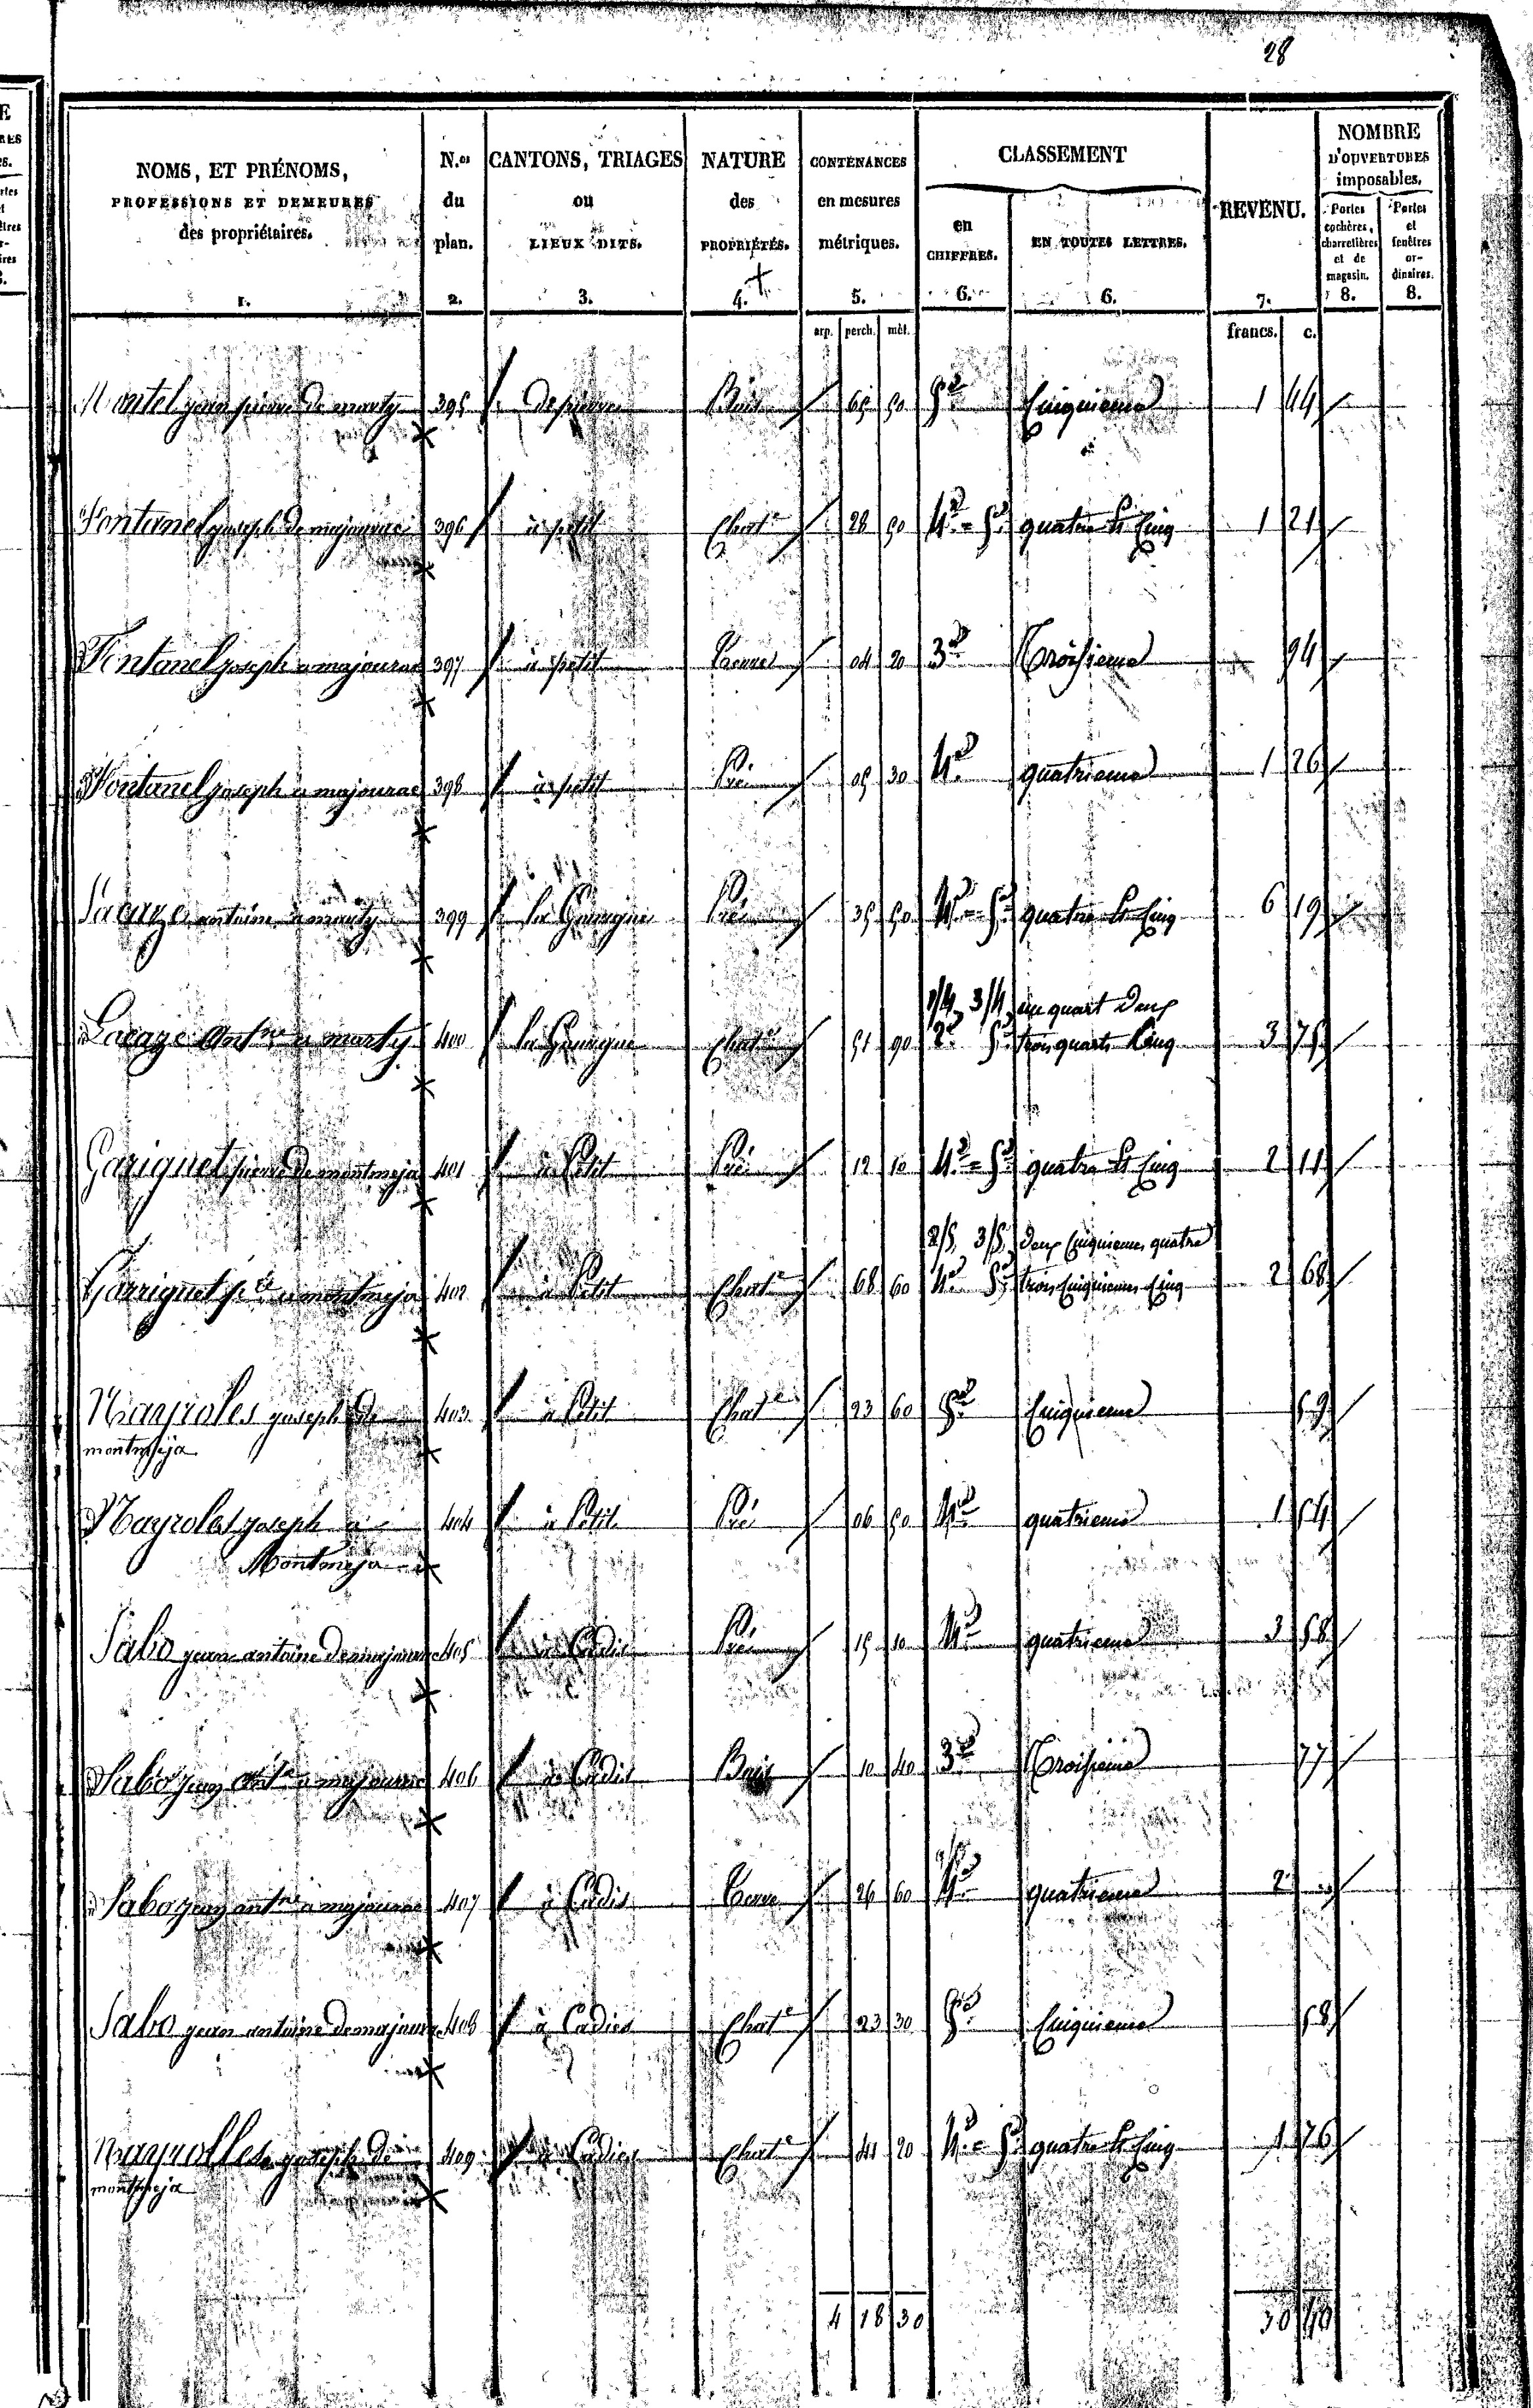 28
NOMS, ET PRÉNOMS, PROFESSIONS ET DEMEURES des propriétaires. 1.
N.os du plan. 2.
CANTONS, TRIAGES ou LIEUX DITS. 3.
NATURE des PROPRIÉTÉS. 4.
CONTENANCES en mesures métriques. 5.
CLASSEMENT
en CHIFFRES. 6.
EN TOUTES LETTRES. 6.
REVENU. 7.
NOMBRE D'OUVERTURES imposables.
Portes cochères, charretières et de magasin. 8.
Portes et fenêtres ordinaires. 8.
arp. perch. mèt. francs. c.
Montel jean pierre de marty 395 Bois 65 50 5e Cinquieme 1 44
Fontanel joseph de majourac 396 à petit Chate 28 50 4e = 5e quatre et Cinq 1 21
Fontanel joseph a majourac 397 à petit Terre 04 20 3e Troisieme 94
Fontanel joseph a majourac 398 à petit Pré 05 30 4e quatrieme 1 26
Lacaze antoine à marty 399 la Garrigue Pré 35 50 4e = 5e quatre et Cinq 6 19
1/4 3/4 un quart deux
Lacaze Antne a marty 400 la Garrigue Chate 51 90 2e 5e trois quarts Cinq 3 75
Garriguet pierre de montmeja 401 à Petit Pré 12 10 4e = 5e quatre et Cinq 2 11
2/5 3/5 deux Cinquiemes quatre
Garriguet pre a montmeja 402 à Petit Chate 68 60 4e 5e trois Cinquiemes Cinq 2 68
Mayroles joseph de 403 à Petit Chate 23 60 5e Cinquieme 59
montmeja
Mayroles joseph à 404 à Petit Pré 06 50 4e quatrieme 1 54
Montmeja
Sabo jean antoine de majourac 405 à Cadis Pré 15 10 4e quatrieme 3 58
Sabo jean Ante a majourac 406 à Cadis Bois 10 40 3e Troisieme 77
Sabo jean antne a majourac 407 à Cadis Terre 26 60 4e quatrieme 2
Sabo jean antoine de majourac 408 à Cadies Chate 23 30 5e Cinquieme 58
Mayrolles joseph de 409 à Cadies Chate 41 20 4e = 5e quatre et Cinq 1 76
montmeja
4 18 30 30 40